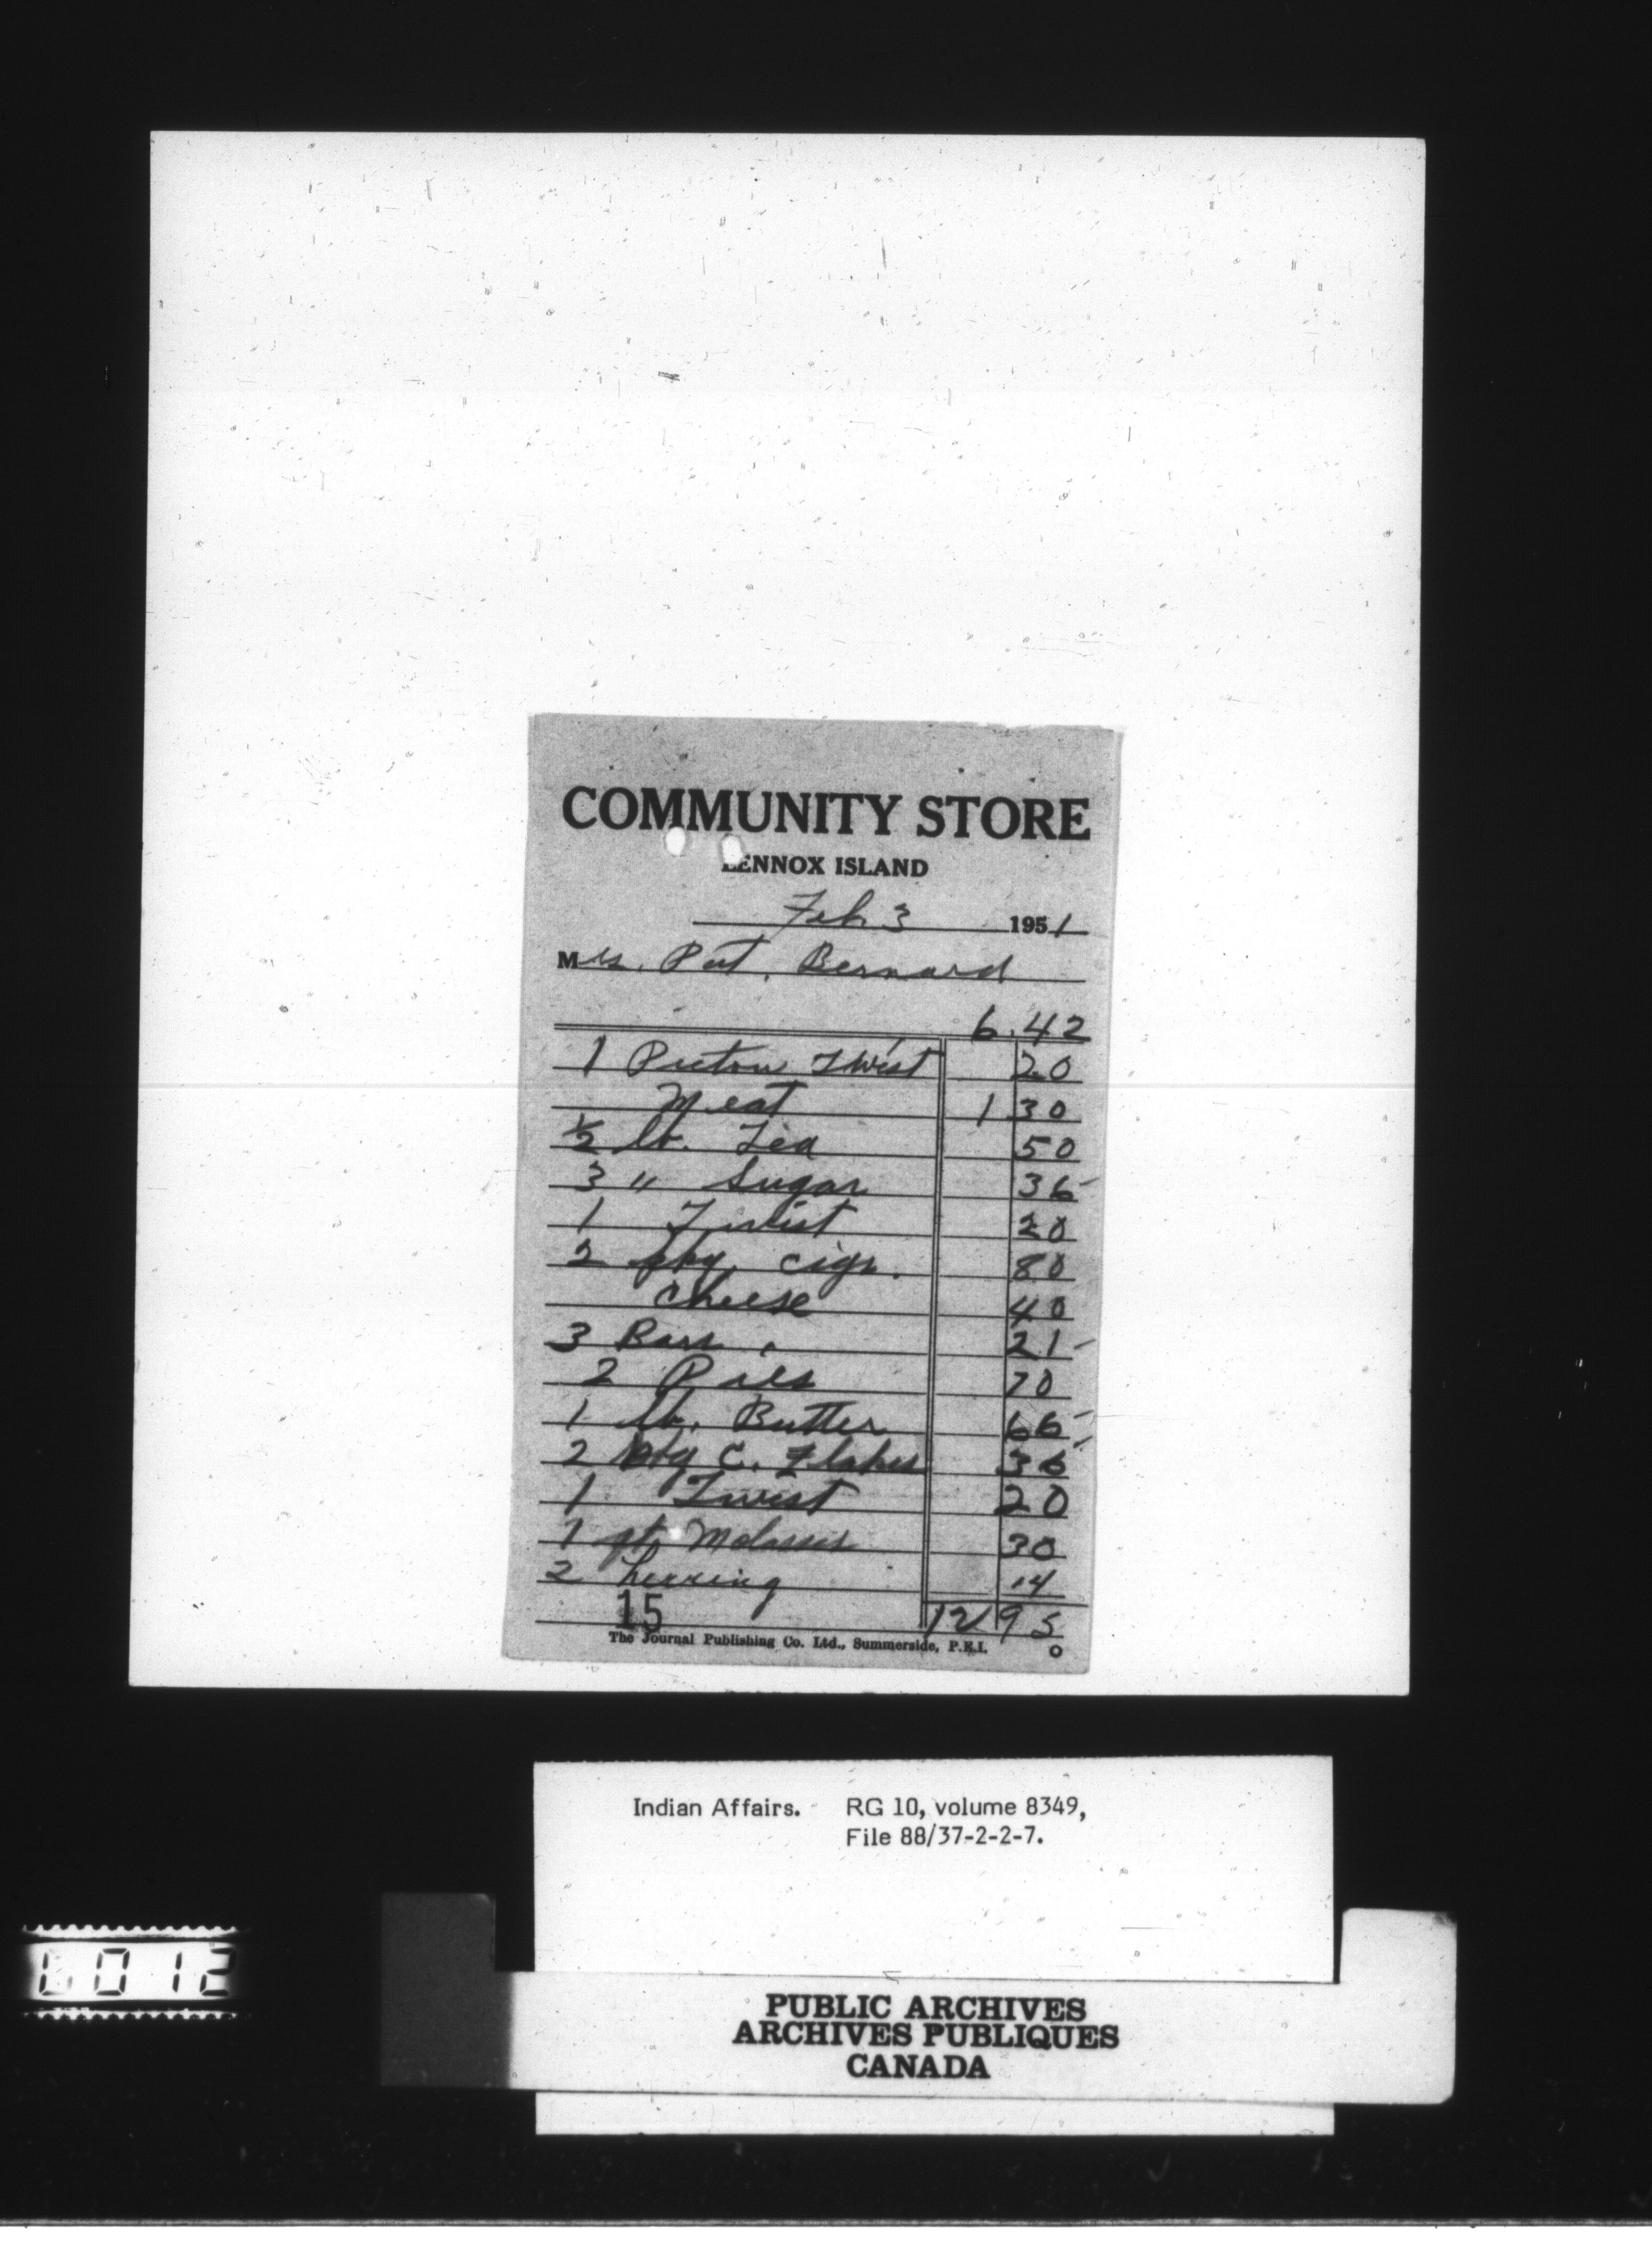 COMMUNITY STORE
LENNOX ISLAND
Feb 3 1951
Mrs. Pat. Bernard
6.42
1 Pictou Twist 20
Meat 1 30
½ lb. Tea 50
3 " Sugar 36
1 Twist 20
2 pkg. cigs. 80
Cheese 40
3 Bars 21
2 Pies 70
1 lb. Butter 66
2 pkg C. Flakes 36
1 Twist 20
1 qt. Molasses 30
2 herring 14
15 12 95
The Journal Publishing Co. Ltd., Summerside, P.E.I.
Indian Affairs. RG 10, volume 8349,
File 88/37-2-2-7.
012
PUBLIC ARCHIVES
ARCHIVES PUBLIQUES
CANADA